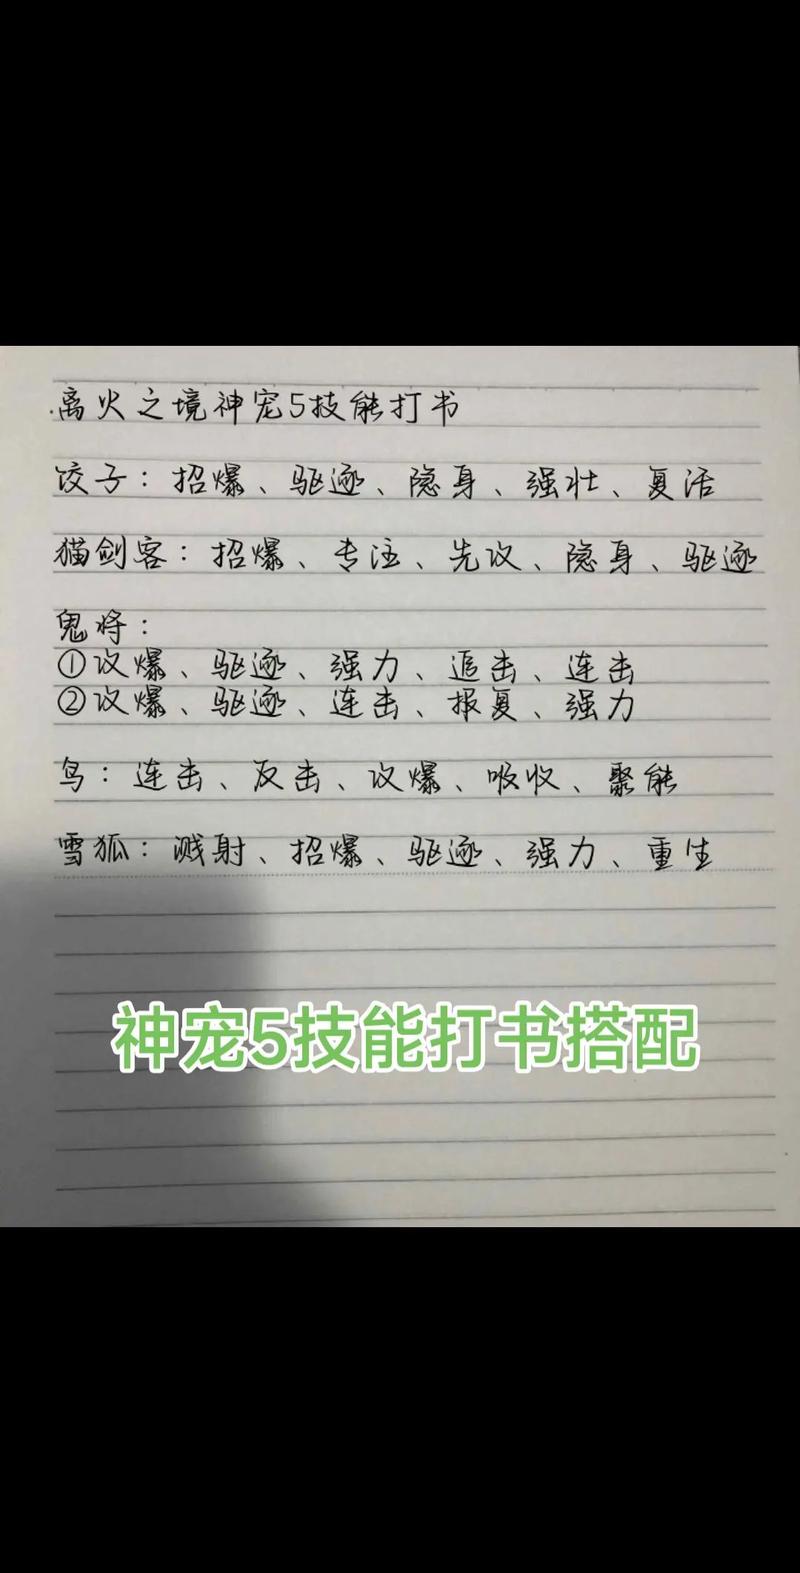 离火之境神宠5技能打书
饺子：招爆、驱逐、隐身、强壮、复活
猫剑客：招爆、专注、先攻、隐身、驱逐
鬼将：
①攻爆、驱逐、强力、追击、连击
②攻爆、驱逐、连击、报复、强力
鸟：连击、反击、攻爆、吸收、聚能
雪狐：溅射、招爆、驱逐、强力、重生
神宠5技能打书搭配